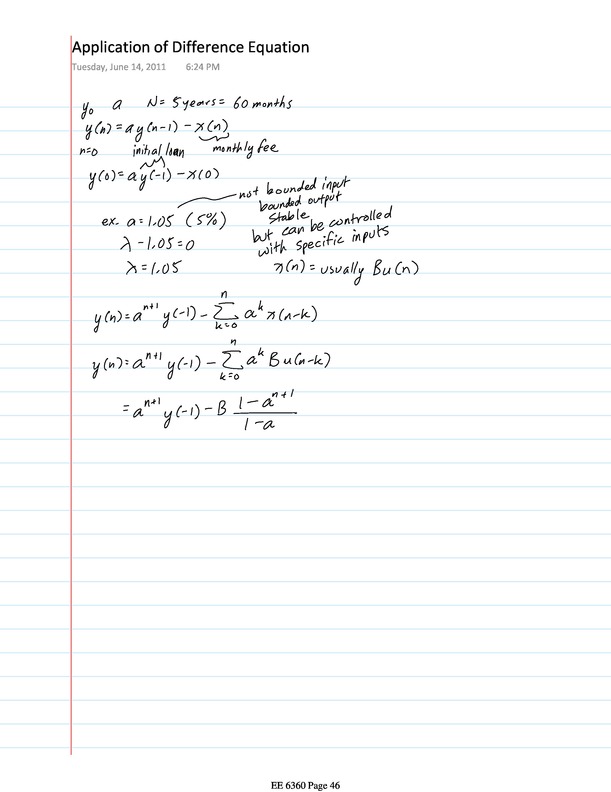 Application of Difference Equation
Tuesday, June 14, 2011 6:24 PM
y₀ a N = 5 years = 60 months
y(n) = a y(n-1) - x(n)
n=0 initial loan monthly fee
y(0) = a y(-1) - x(0)
not bounded input
bounded output
stable
but can be controlled
with specific inputs
ex. a = 1.05 (5%)
λ - 1.05 = 0
λ = 1.05 x(n) = usually Bu(n)
y(n) = a^{n+1} y(-1) - \sum_{k=0}^{n} a^k x(n-k)
y(n) = a^{n+1} y(-1) - \sum_{k=0}^{n} a^k B u(n-k)
= a^{n+1} y(-1) - B \frac{1-a^{n+1}}{1-a}
EE 6360 Page 46